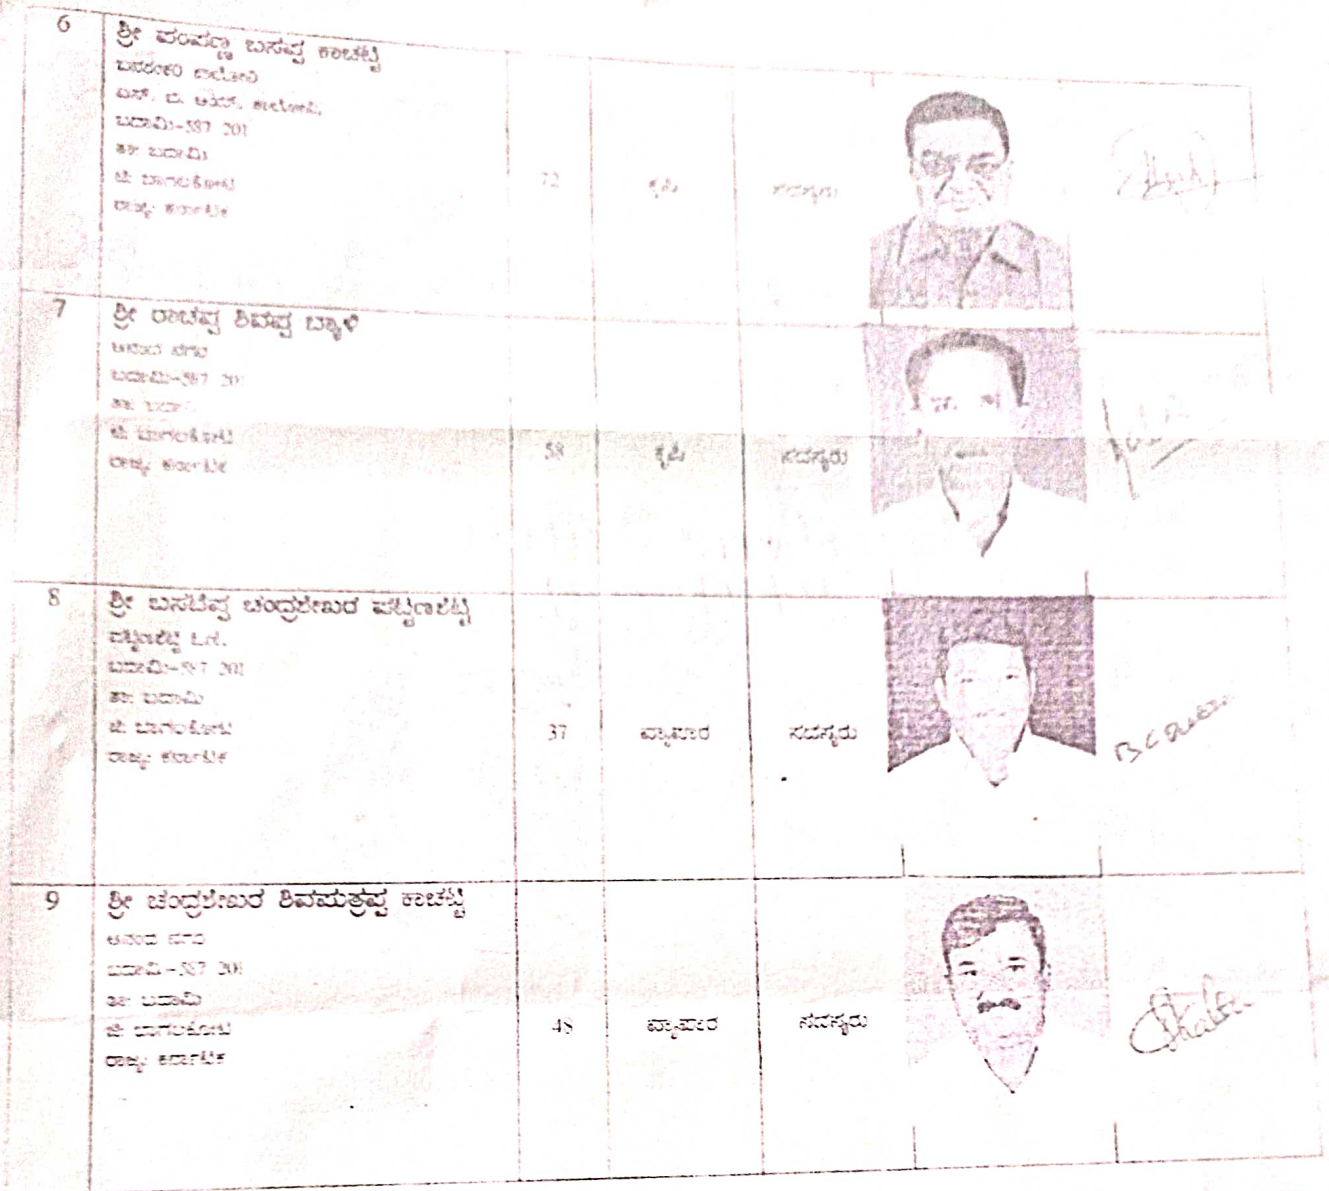 6 ಶ್ರೀ ಪಂಪಣ್ಣ ಬಸಪ್ಪ ಕಾಚಟ್ಟಿ
ಎಸ್. ಬಿ. ಆಯ್. ಕಾಲೋನಿ,
ಬದಾಮಿ-587 201
ತಾ: ಬದಾಮಿ
ಜಿ: ಬಾಗಲಕೋಟ
ರಾಜ್ಯ: ಕರ್ನಾಟಕ
72 ಕೃಷಿ ಸದಸ್ಯರು
7 ಶ್ರೀ ರಾಚಪ್ಪ ಶಿವಪ್ಪ ಬ್ಯಾಳಿ
ಆನಂದ ನಗರ
ಬದಾಮಿ-587 201
ತಾ: ಬದಾಮಿ
ಜಿ: ಬಾಗಲಕೋಟ
ರಾಜ್ಯ: ಕರ್ನಾಟಕ
58 ಕೃಷಿ ಸದಸ್ಯರು
8 ಶ್ರೀ ಬಸಟೆಪ್ಪ ಚಂದ್ರಶೇಖರ ಪಟ್ಟಣಶೆಟ್ಟಿ
ಪಟ್ಟಣಶೆಟ್ಟಿ ಓಣಿ.
ಬದಾಮಿ-587 201
ತಾ: ಬದಾಮಿ
ಜಿ: ಬಾಗಲಕೋಟ
ರಾಜ್ಯ: ಕರ್ನಾಟಕ
37 ವ್ಯಾಪಾರ ಸದಸ್ಯರು
9 ಶ್ರೀ ಚಂದ್ರಶೇಖರ ಶಿವಪುತ್ರಪ್ಪ ಕಾಚಟ್ಟಿ
ಆನಂದ ನಗರ
ಬದಾಮಿ-587 201
ತಾ: ಬದಾಮಿ
ಜಿ: ಬಾಗಲಕೋಟ
ರಾಜ್ಯ: ಕರ್ನಾಟಕ
48 ವ್ಯಾಪಾರ ಸದಸ್ಯರು